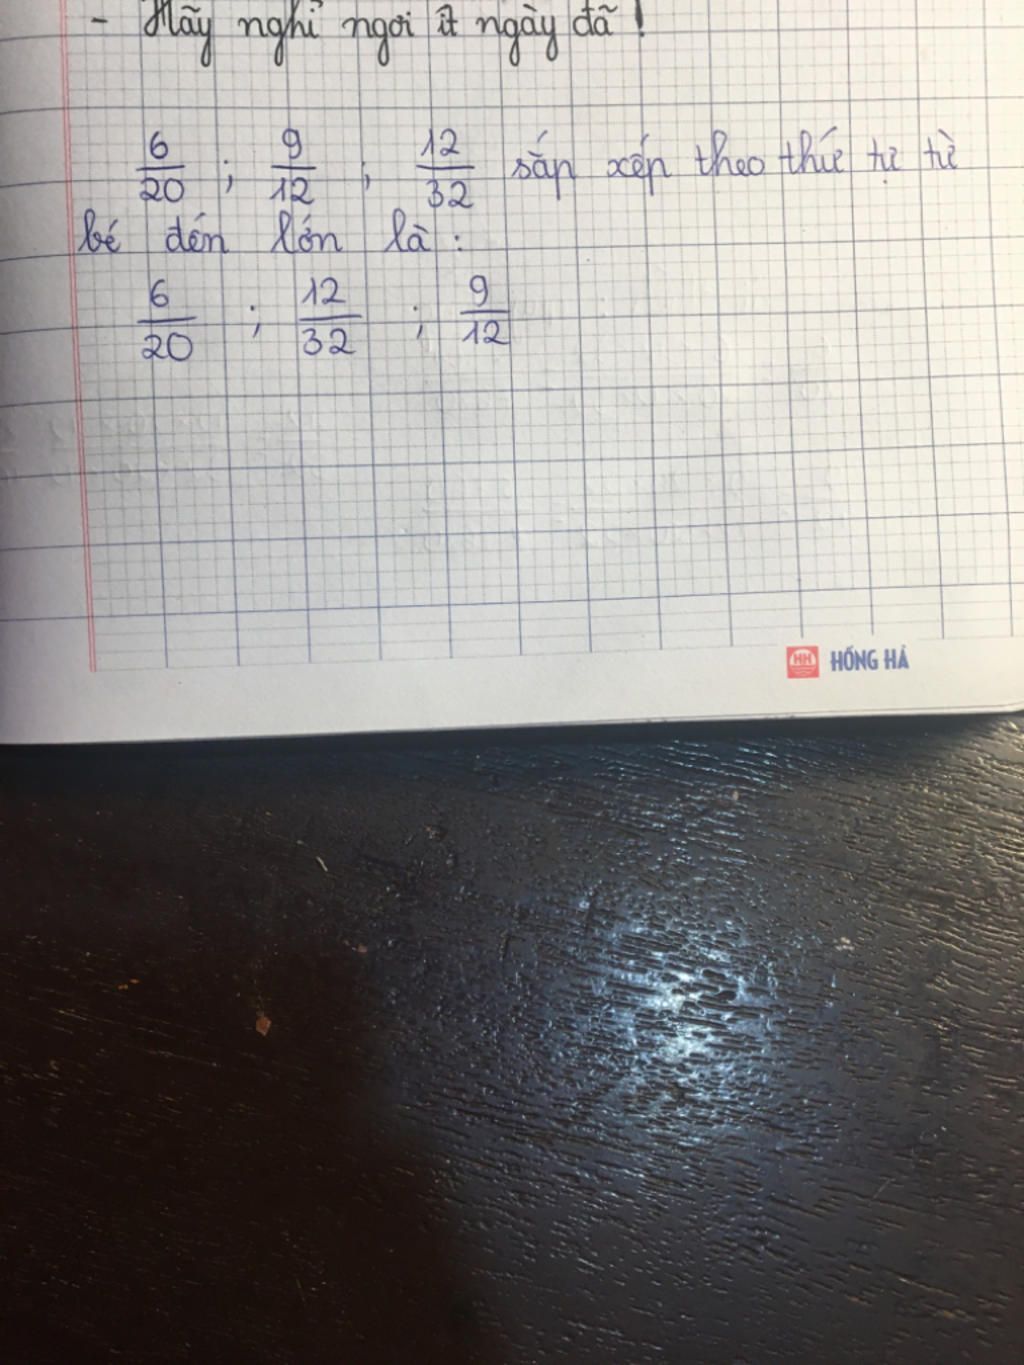 - Hãy nghỉ ngơi ít ngày đã !
6/20 ; 9/12 ; 12/32 sắp xếp theo thứ tự từ
bé đến lớn là :
6/20 ; 12/32 ; 9/12
HH HỒNG HÀ